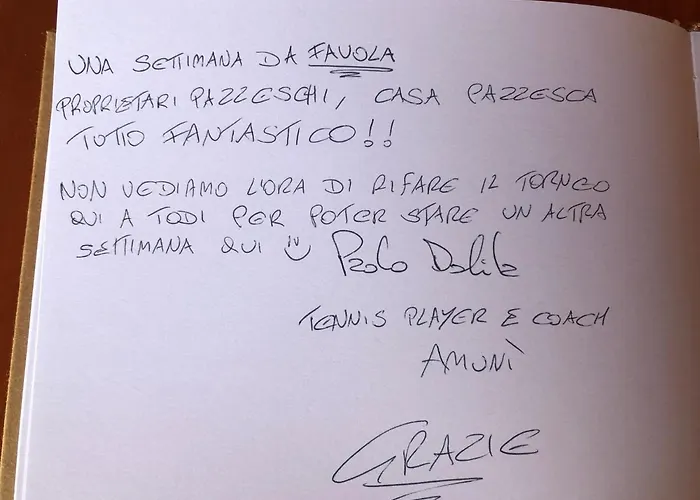 UNA SETTIMANA DA FAVOLA
PROPRIETARI PAZZESCHI, CASA PAZZESCA
TUTTO FANTASTICO!!
NON VEDIAMO L'ORA DI RIFARE IL TORNEO
QUI A TODI PER POTER STARE UN ALTRA
SETTIMANA QUI Paolo
TENNIS PLAYER E COACH
AMUNÌ
GRAZIE